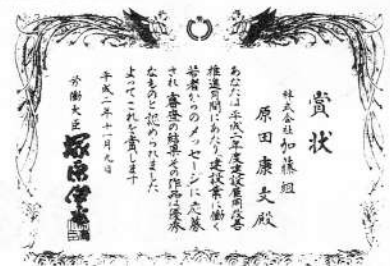 賞状
株式会社 加藤組
原田康文殿
あなたは平成二年度建設雇用改善
推進月間にあたり建設業に働く
若者からのメッセージに応募
され審査の結果その作品は優秀
なものと認められました
よってこれを賞します
平成二年十一月九日
労働大臣 塚原俊平